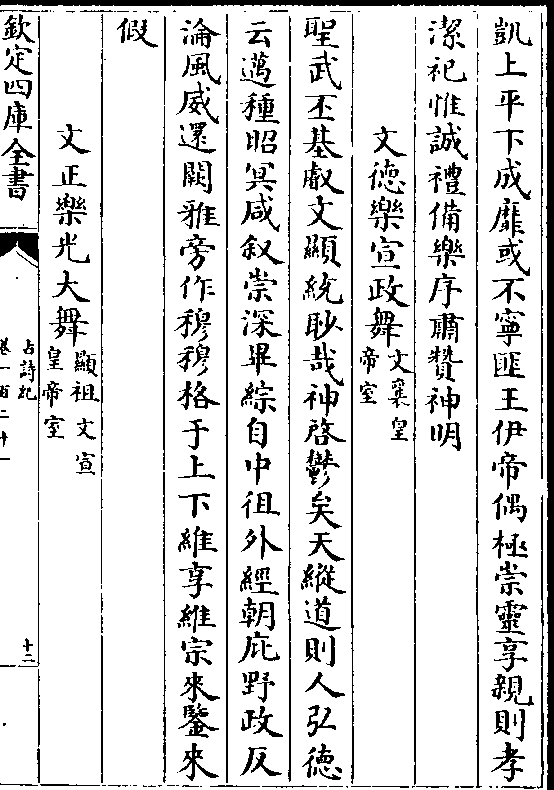 凱上平下成靡或不寧匪王伊帝偶極崇靈享親則孝
潔祀惟誠禮備樂序肅贊神明
文德樂宣政舞文襄皇帝室
聖武丕基叡文顯統眇哉神啓鬱矣天縱道則人弘德
云邁種昭冥咸叙崇深畢綜自中徂外經朝庇野政反
淪風威還闕雅旁作穆穆格于上下維享維宗來鑒來
假
文正樂光大舞顯祖文宣皇帝室
欽定四庫全書
古詩紀
卷一百二十一
十二